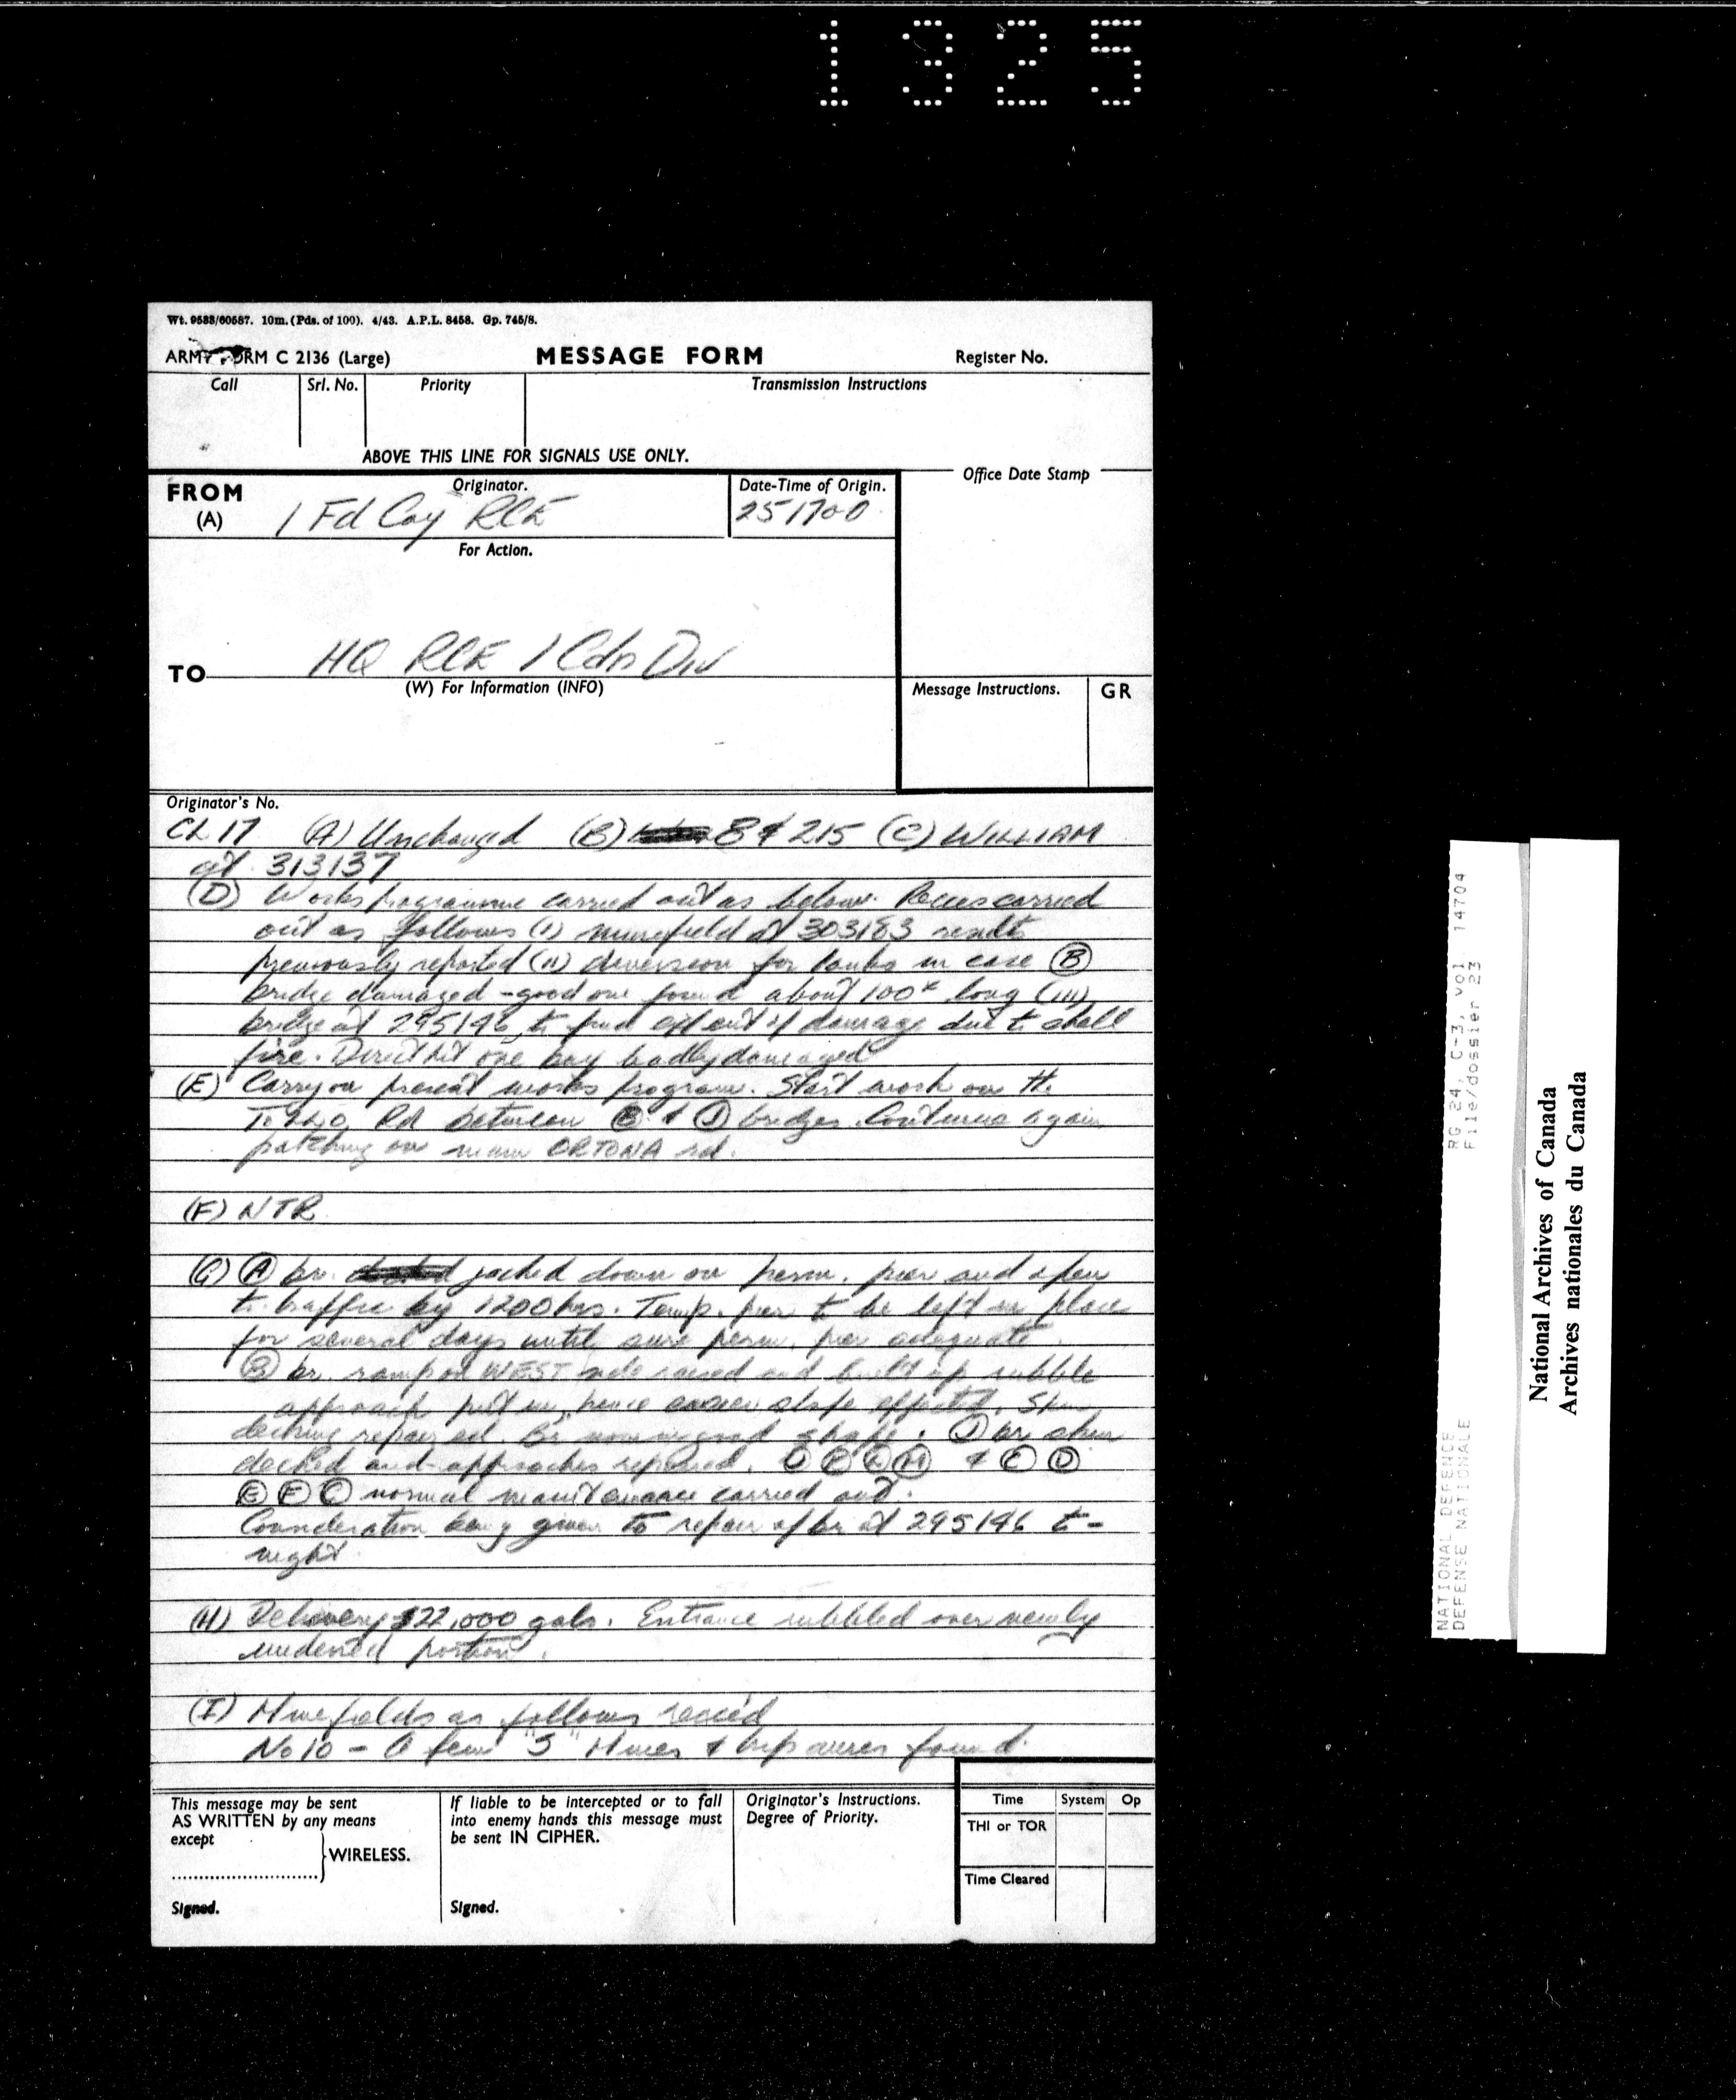 1325
Wt. 9583/60687. 10m. (Pds. of 100). 4/43. A.P.L. 8458. Gp. 745/8.
ARMY FORM C 2136 (Large) MESSAGE FORM Register No.
Call Srl. No. Priority Transmission Instructions
ABOVE THIS LINE FOR SIGNALS USE ONLY.
Office Date Stamp
FROM Originator. Date-Time of Origin.
(A) 1 Fd Coy RCE 251700
For Action.
TO HQ RCE 1 Cdn Div
(W) For Information (INFO) Message Instructions. GR
Originator's No.
CL 17 (A) Unchanged (B) 8 & 215 (C) WILLIAM
at 313137
(D) Works programme carried out as below. Recces carried
out as follows (I) minefield at 303183 results
previously reported (II) diversion for tanks in case (B)
bridge damaged - good one found about 100x long (III)
bridge at 295146 to find extent of damage due to shell
fire. Direct hit one bay badly damaged
(E) Carry on present works program. Start work on the
Rd between (B) & (J) bridges. Continue again
patching on main ORTONA rd.
(F) NTR
(G) (A) br. jacked down on perm. pier and open
to traffic by 1200 hrs. Temp. pier to be left in place
for several days until sure perm. pier adequate.
(B) br. ramp on WEST side raised and built up rubble
approach put in, hence easier slope effected.
decking repaired. Br now in good shape. (J) br
decked and approaches repaired. & (C) (D)
(E) (F) (G) normal maintenance carried out.
Consideration being given to repair of br at 295146 to-
night.
(H) Delivery 22,000 gals. Entrance rubbled over newly
widened portion.
(I) Minefields as follows recced
No 10 - A few "S" Mines & trip wires found.
This message may be sent
AS WRITTEN by any means
except
WIRELESS.
Signed.
If liable to be intercepted or to fall
into enemy hands this message must
be sent IN CIPHER.
Signed.
Originator's Instructions.
Degree of Priority.
Time System Op
THI or TOR
Time Cleared
NATIONAL DEFENCE RG 24, C-3, vol 14704
DEFENSE NATIONALE File/dossier 23
National Archives of Canada
Archives nationales du Canada